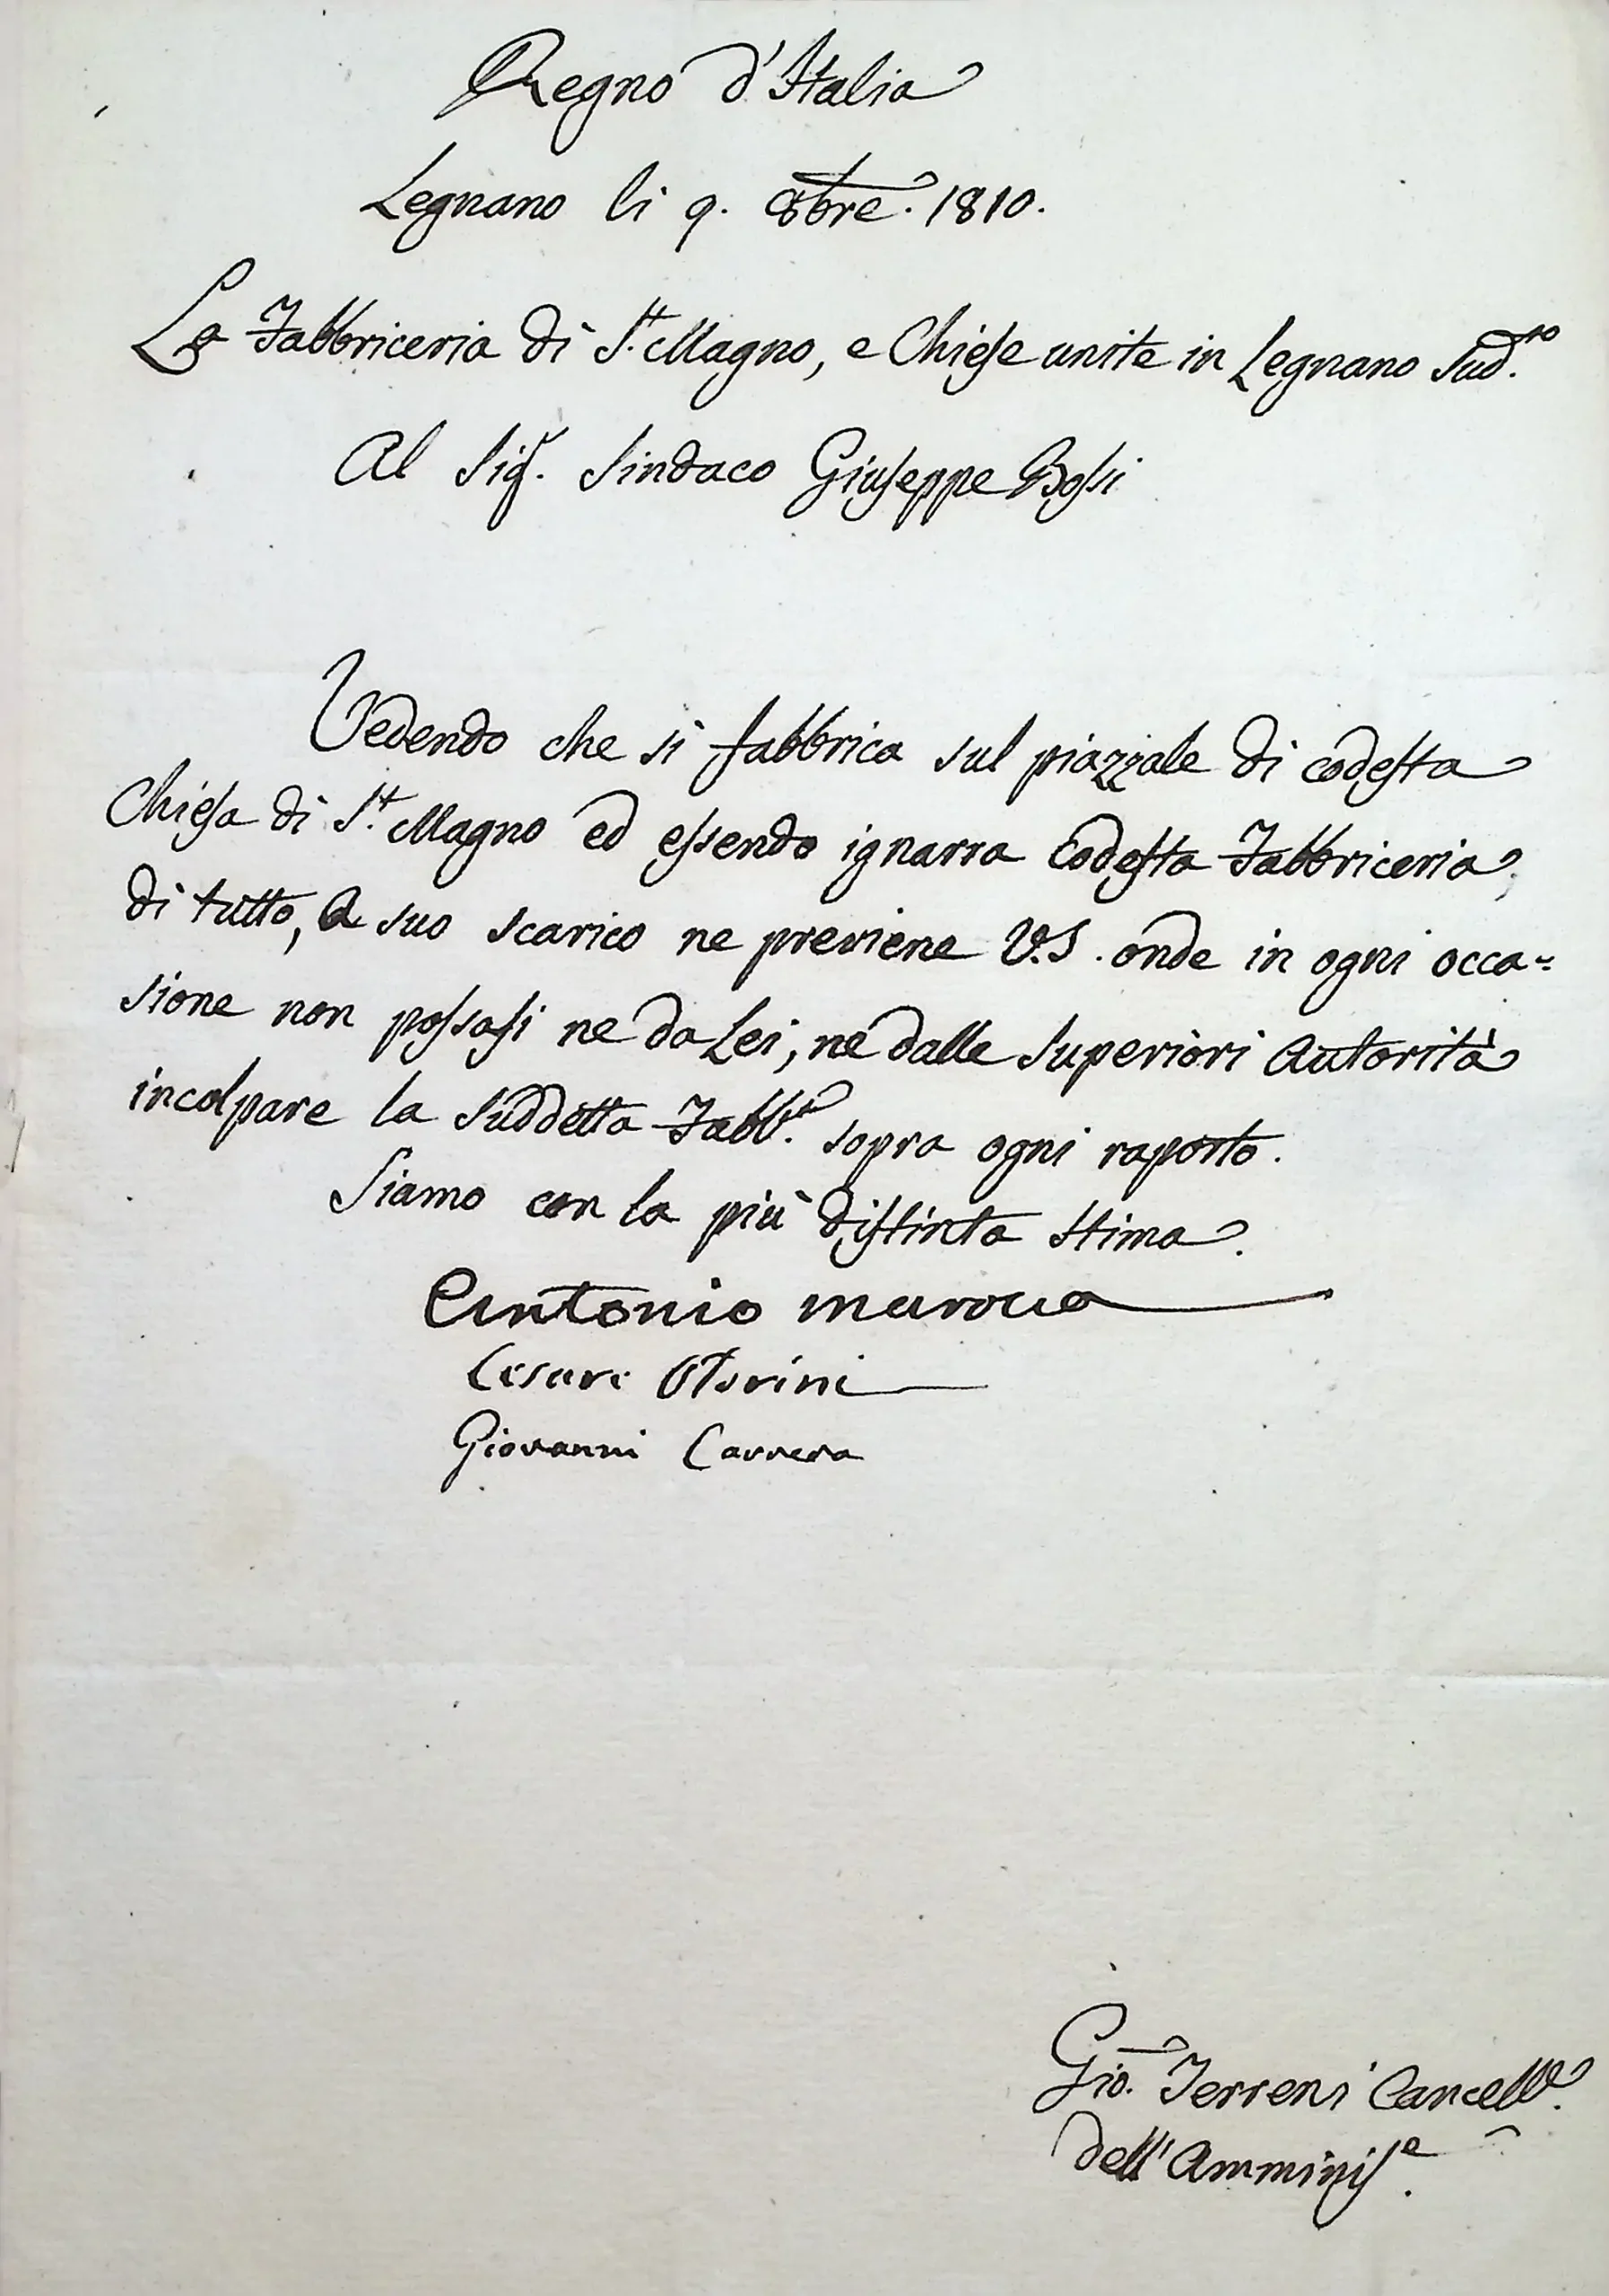 Regno d'Italia
Legnano li 9. 8bre. 1810.
La Fabbriceria di S.t Magno, e Chiese unite in Legnano Sud.to
Al Sig.r Sindaco Giuseppe Bossi
Vedendo che si fabbrica sul piazzale di codesta
Chiesa di S.t Magno ed essendo ignarra Codesta Fabbriceria,
di tutto, a suo scarico ne previene V.S. onde in ogni occa=
sione non possasi ne da Lei, ne dalle Superiori Autorità
incolpare la Suddetta Fabb.a sopra ogni raporto.
Siamo con la più distinta stima.
Antonio
Cesare
Giovanni Carrera
Gio. Terreni Cancell.e
dell' Amminis.e